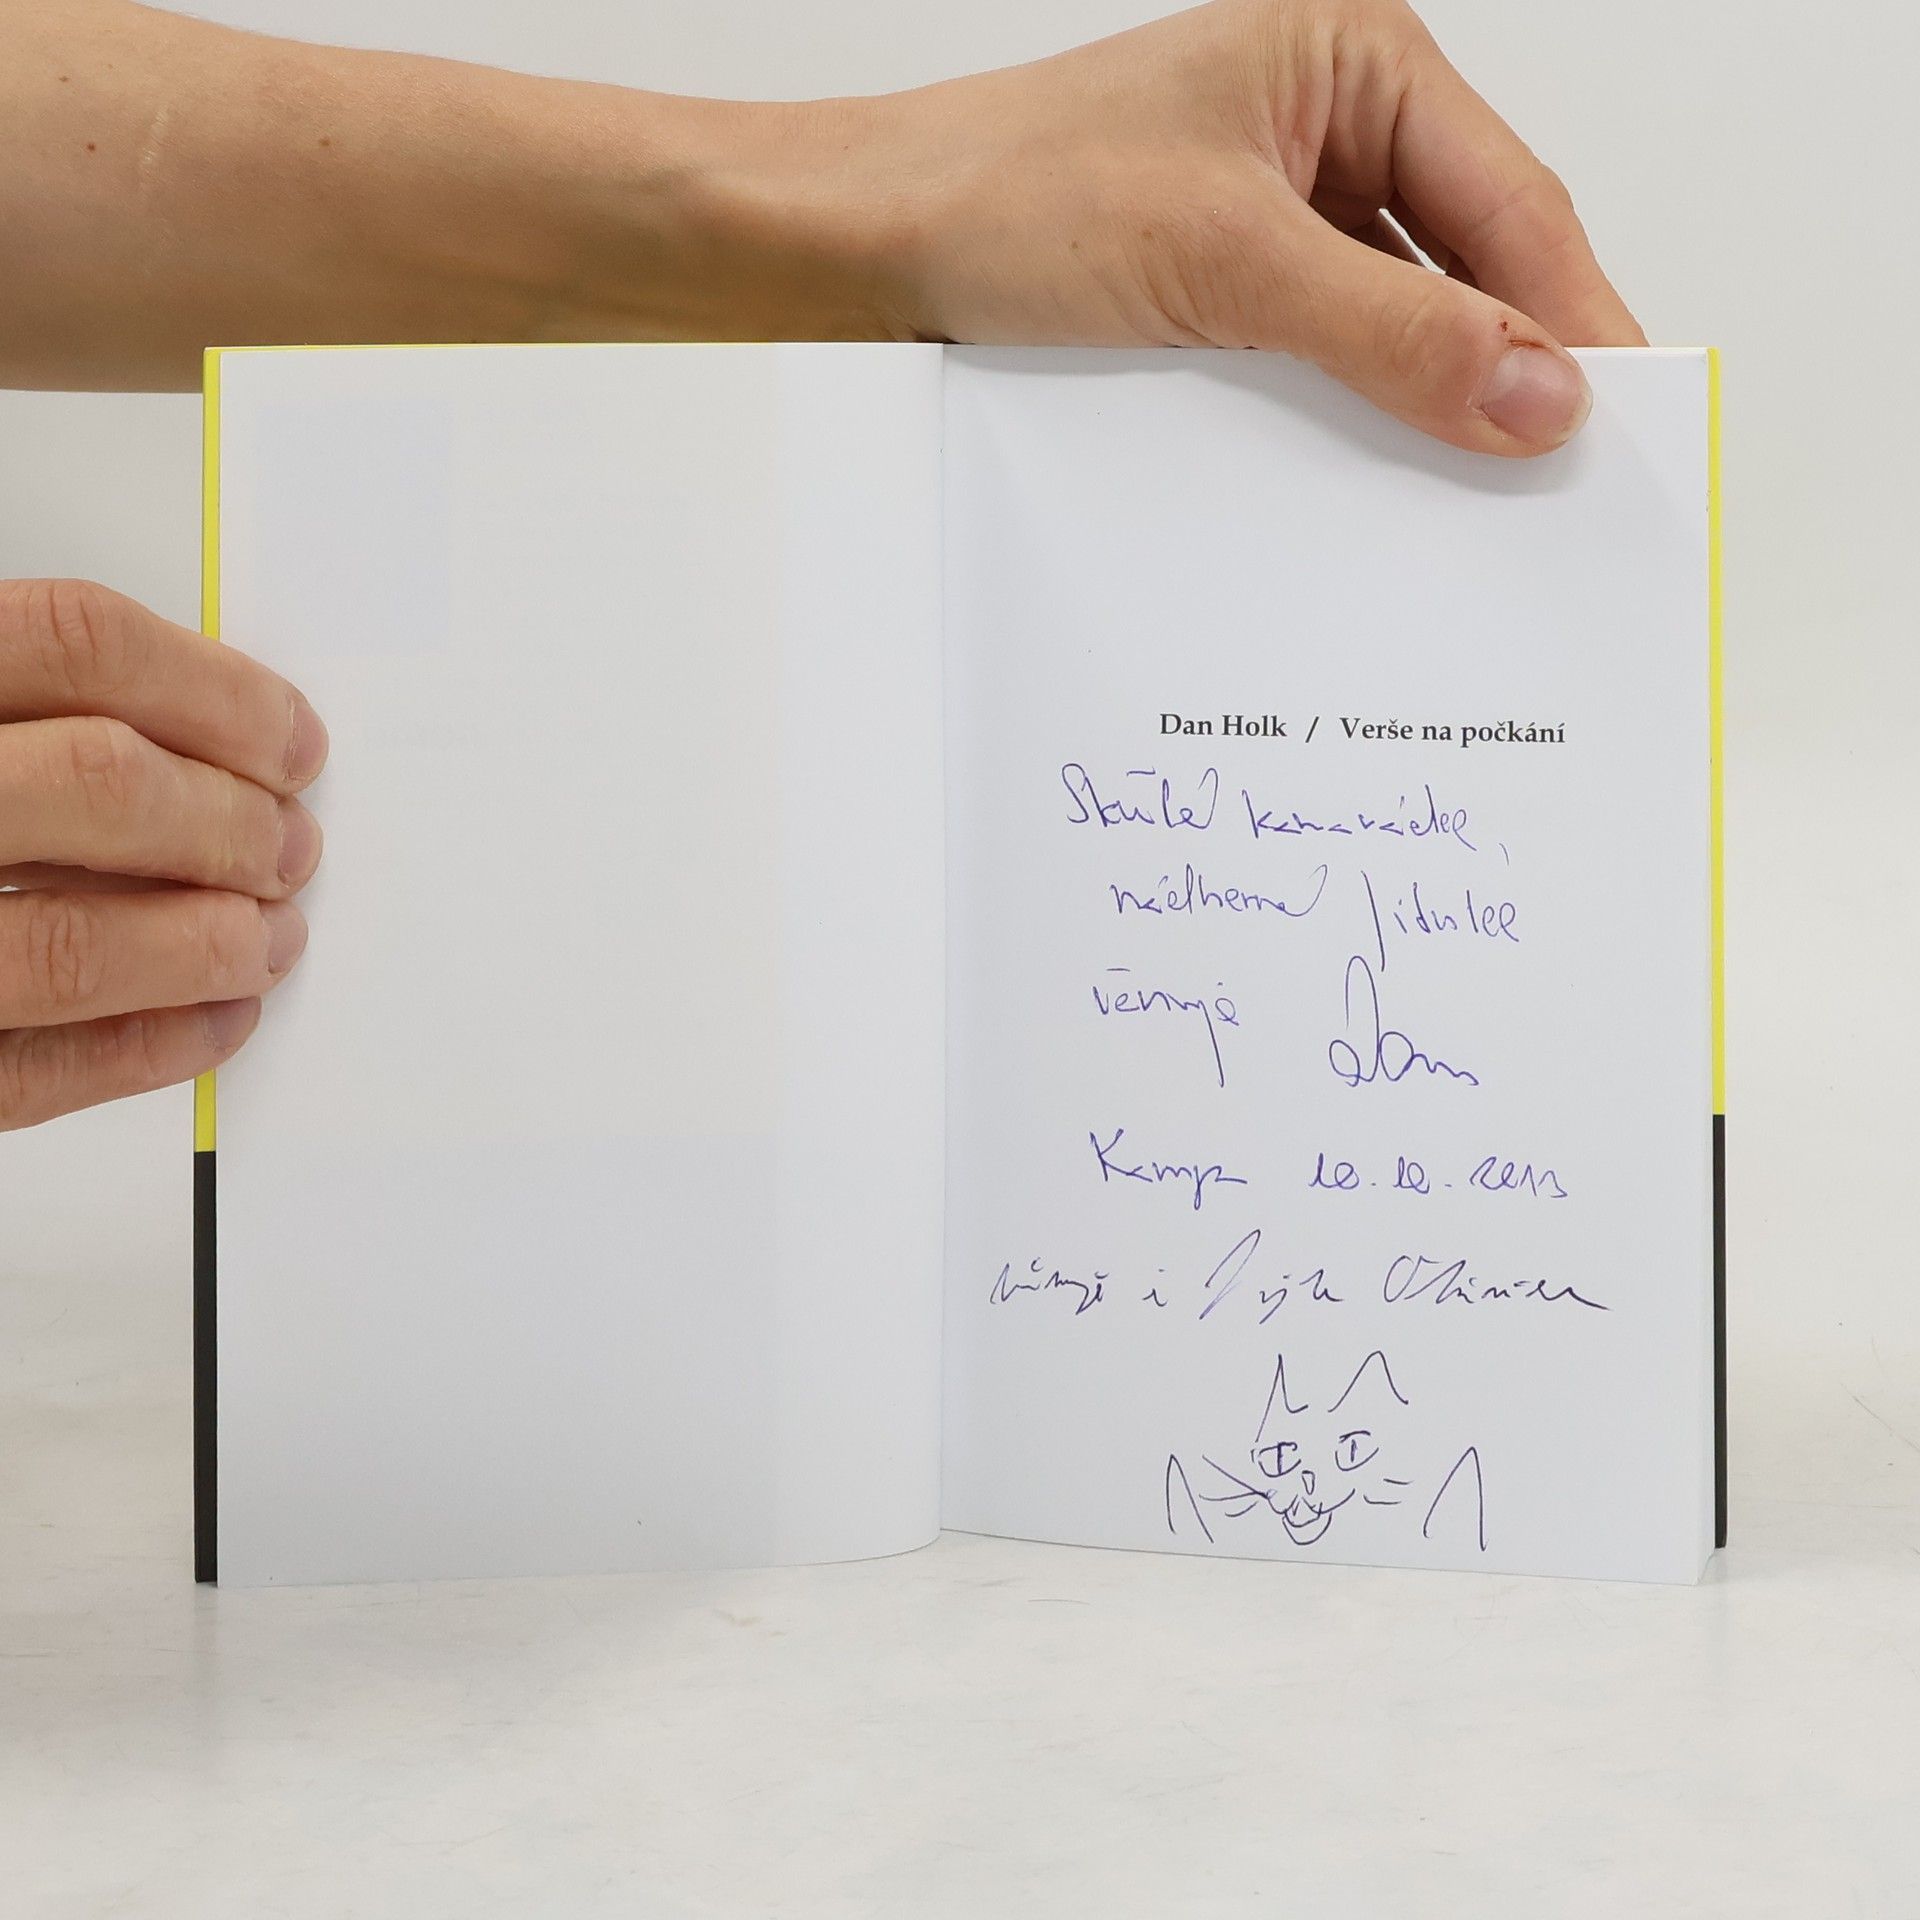 Dan Holk / Verše na počkání
Skvělé kamarádce,
nádherné Jitušce
věnuje Dan
Kampa 10. 10. 2013
věnuje i